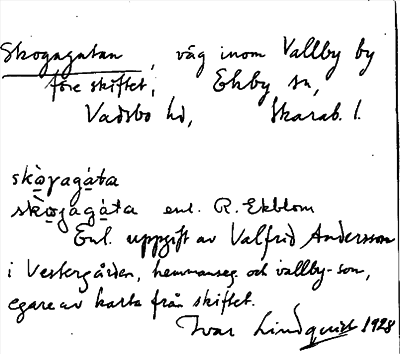 Skogagatan, väg inom Vallby by
före skiftet, Ekby sn,
Vadsbo hd, Skarab. l.
skò̱gagá̱ta
skò̱gagá̱ta enl. R. Ekblom
Enl. uppgift av Valfrid Andersson
i Vestergården, hemmanseg. och vallby-son,
egare av karta från skiftet.
Ivar Lindquist 1928